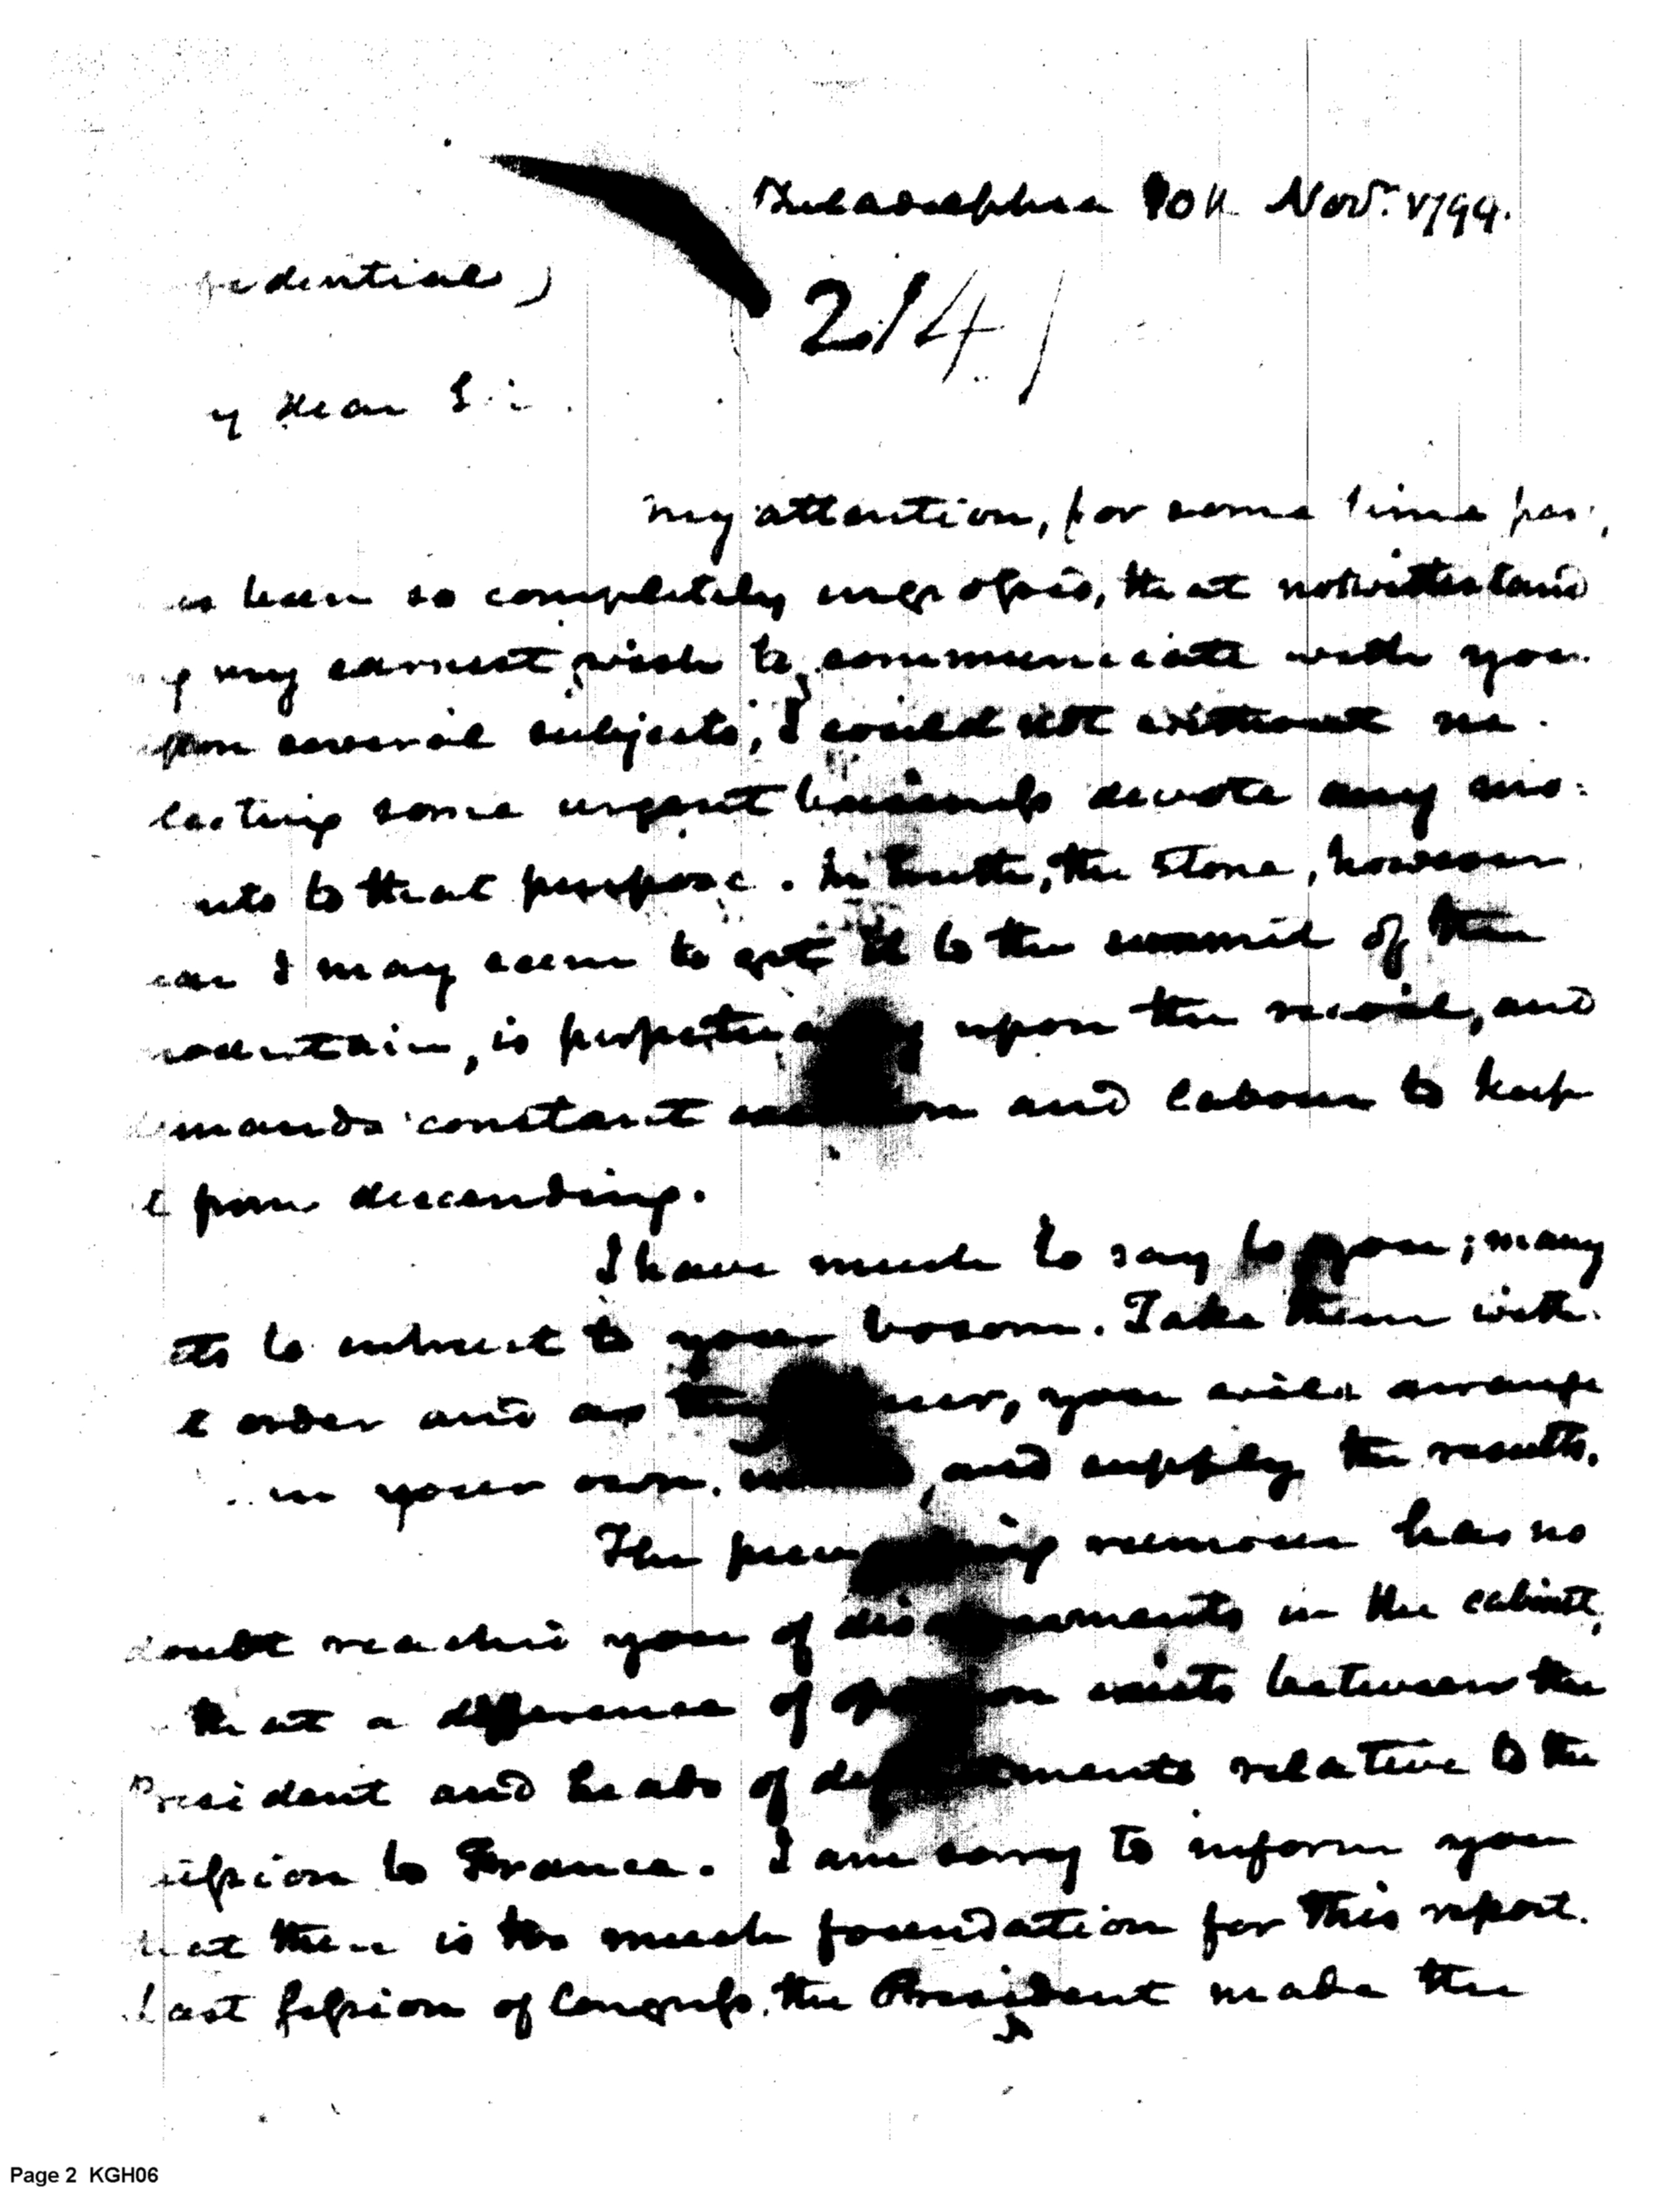 Philadelphia 10th Novr. 1799.
fidential)
214
y dear Sir.
My attention, for some time pas,
as been so completely engrossed, that notwithstand
g my earnest wish to communicate with you
upon several subjects, I could not without ne-
lecting some urgent business devote any mo-
nts to that purpose. In truth, the stone, however
ear I may seem to get it to the summit of the
mountain, is perpetually upon the recoil, and
demands constant and labour to keep
t from descending.
I have much to say to you; many
cts to entrust to your bosom. Take them with-
t order and as they, you will arrange
in your own, and supply the results.
The rumour has no
doubt reached you of disagreements in the cabinet,
that a difference of opinion exists between the
President and heads of departments relative to the
ission to France. I am sorry to inform you
that there is too much foundation for this report.
Last session of Congress, the President made the
Page 2 KGH06